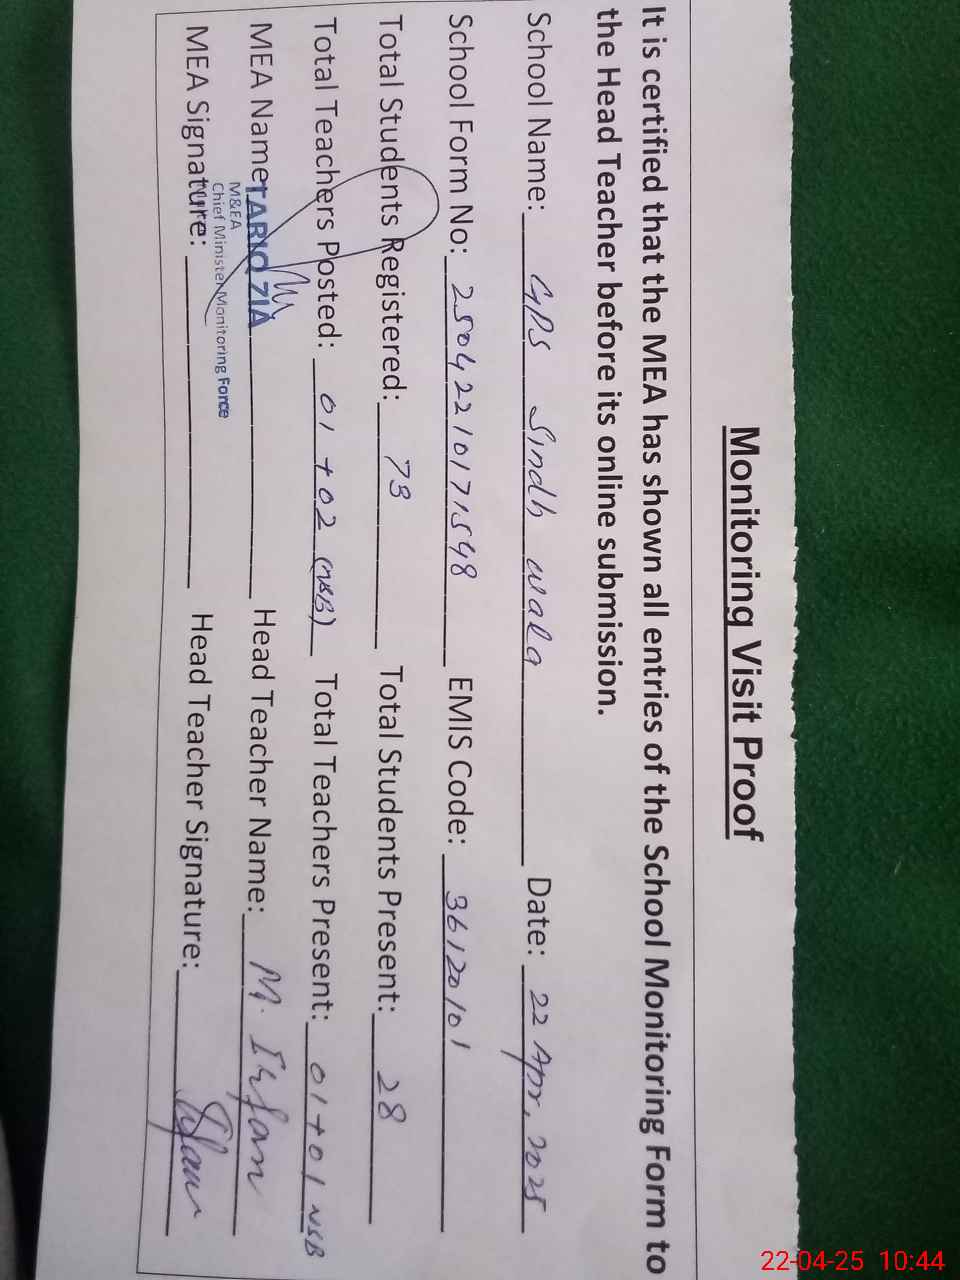 Monitoring Visit Proof
It is certified that the MEA has shown all entries of the School Monitoring Form to
the Head Teacher before its online submission.
School Name: GPS Sindh wala Date: 22 Apr, 2025
School Form No: 25042210171548 EMIS Code: 36120101
Total Students Registered: 73 Total Students Present: 28
Total Teachers Posted: 01 + 02 (NSB) Total Teachers Present: 01 + 01 NSB
MEA Name TARIQ ZIA Head Teacher Name: M. Irfan
M&EA
Chief Minister Monitoring Force
MEA Signature: Head Teacher Signature:
22-04-25 10:44